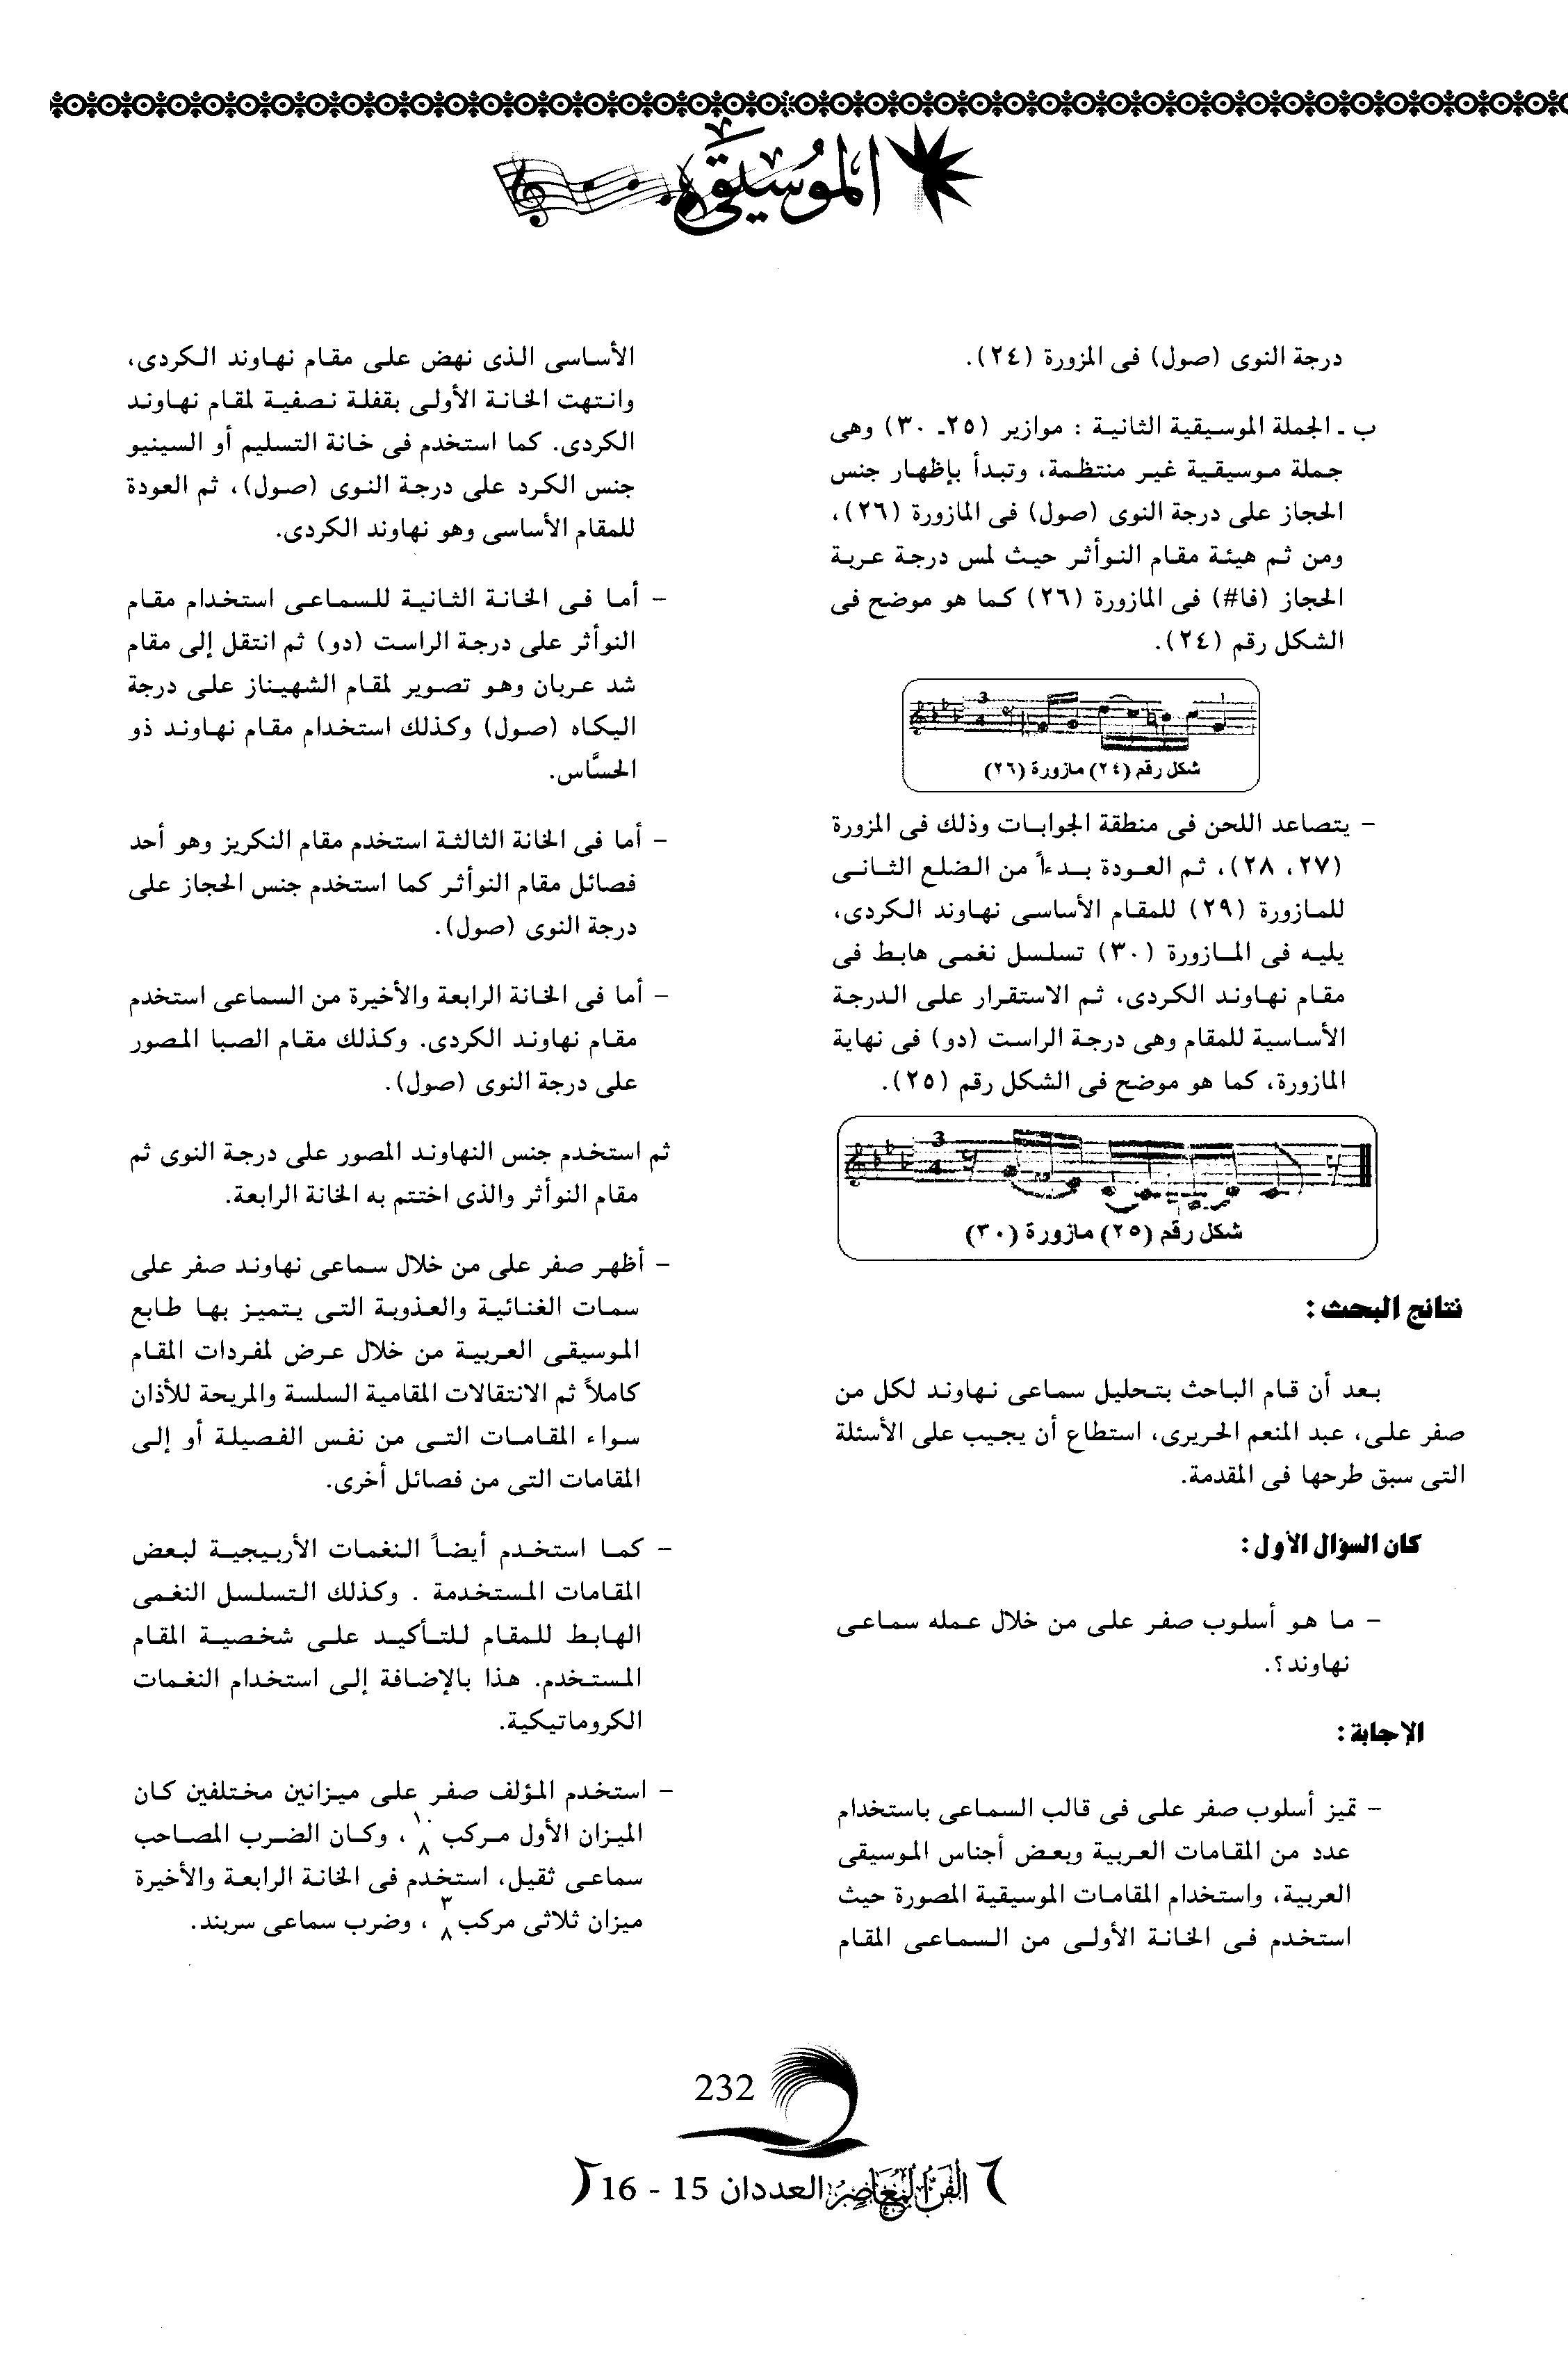 الموسيقى
درجة النوى (صول) فى المزورة (٢٤).
ب ـ الجملة الموسيقية الثانية : موازير (٢٥ـ ٣٠) وهى
جملة موسيقية غير منتظمة، وتبدأ بإظهار جنس
الحجاز على درجة النوى (صول) فى المازورة (٢٦)،
ومن ثم هيئة مقام النوأثر حيث لمس درجة عربة
الحجاز (فا#) فى المازورة (٢٦) كما هو موضح فى
الشكل رقم (٢٤).
3
4
شكل رقم (٢٤) مازورة (٢٦)
– يتصاعد اللحن فى منطقة الجوابات وذلك فى المزورة
(٢٧، ٢٨)، ثم العودة بدءاً من الضلع الثانى
للمازورة (٢٩) للمقام الأساسى نهاوند الكردى،
يليه فى المازورة (٣٠) تسلسل نغمى هابط فى
مقام نهاوند الكردى، ثم الاستقرار على الدرجة
الأساسية للمقام وهى درجة الراست (دو) فى نهاية
المازورة، كما هو موضح فى الشكل رقم (٢٥).
3
4
شكل رقم (٢٥) مازورة (٣٠)
نتائج البحث :
بعد أن قام الباحث بتحليل سماعى نهاوند لكل من
صفر على، عبد المنعم الحريرى، استطاع أن يجيب على الأسئلة
التى سبق طرحها فى المقدمة.
كان السؤال الأول :
– ما هو أسلوب صفر على من خلال عمله سماعى
نهاوند؟.
الإجابة :
– تميز أسلوب صفر على فى قالب السماعى باستخدام
عدد من المقامات العربية وبعض أجناس الموسيقى
العربية، واستخدام المقامات الموسيقية المصورة حيث
استخدم فى الخانة الأولى من السماعى المقام
الأساسى الذى نهض على مقام نهاوند الكردى،
وانتهت الخانة الأولى بقفلة نصفية لمقام نهاوند
الكردى. كما استخدم فى خانة التسليم أو السينيو
جنس الكرد على درجة النوى (صول)، ثم العودة
للمقام الأساسى وهو نهاوند الكردى.
– أما فى الخانة الثانية للسماعى استخدام مقام
النوأثر على درجة الراست (دو) ثم انتقل إلى مقام
شد عربان وهو تصوير لمقام الشهيناز على درجة
اليكاه (صول) وكذلك استخدام مقام نهاوند ذو
الحسَّاس.
– أما فى الخانة الثالثة استخدم مقام النكريز وهو أحد
فصائل مقام النوأثر كما استخدم جنس الحجاز على
درجة النوى (صول).
– أما فى الخانة الرابعة والأخيرة من السماعى استخدم
مقام نهاوند الكردى. وكذلك مقام الصبا المصور
على درجة النوى (صول).
ثم استخدم جنس النهاوند المصور على درجة النوى ثم
مقام النوأثر والذى اختتم به الخانة الرابعة.
– أظهر صفر على من خلال سماعى نهاوند صفر على
سمات الغنائية والعذوبة التى يتميز بها طابع
الموسيقى العربية من خلال عرض لمفردات المقام
كاملاً ثم الانتقالات المقامية السلسة والمريحة للأذان
سواء المقامات التى من نفس الفصيلة أو إلى
المقامات التى من فصائل أخرى.
– كما استخدم أيضاً النغمات الأربيجية لبعض
المقامات المستخدمة . وكذلك التسلسل النغمى
الهابط للمقام للتأكيد على شخصية المقام
المستخدم. هذا بالإضافة إلى استخدام النغمات
الكروماتيكية.
– استخدم المؤلف صفر على ميزانين مختلفين كان
الميزان الأول مركب ١٠/٨ ، وكان الضرب المصاحب
سماعى ثقيل، استخدم فى الخانة الرابعة والأخيرة
ميزان ثلاثى مركب ٣/٨ ، وضرب سماعى سربند.
232
الفن المعاصر العددان 15 - 16